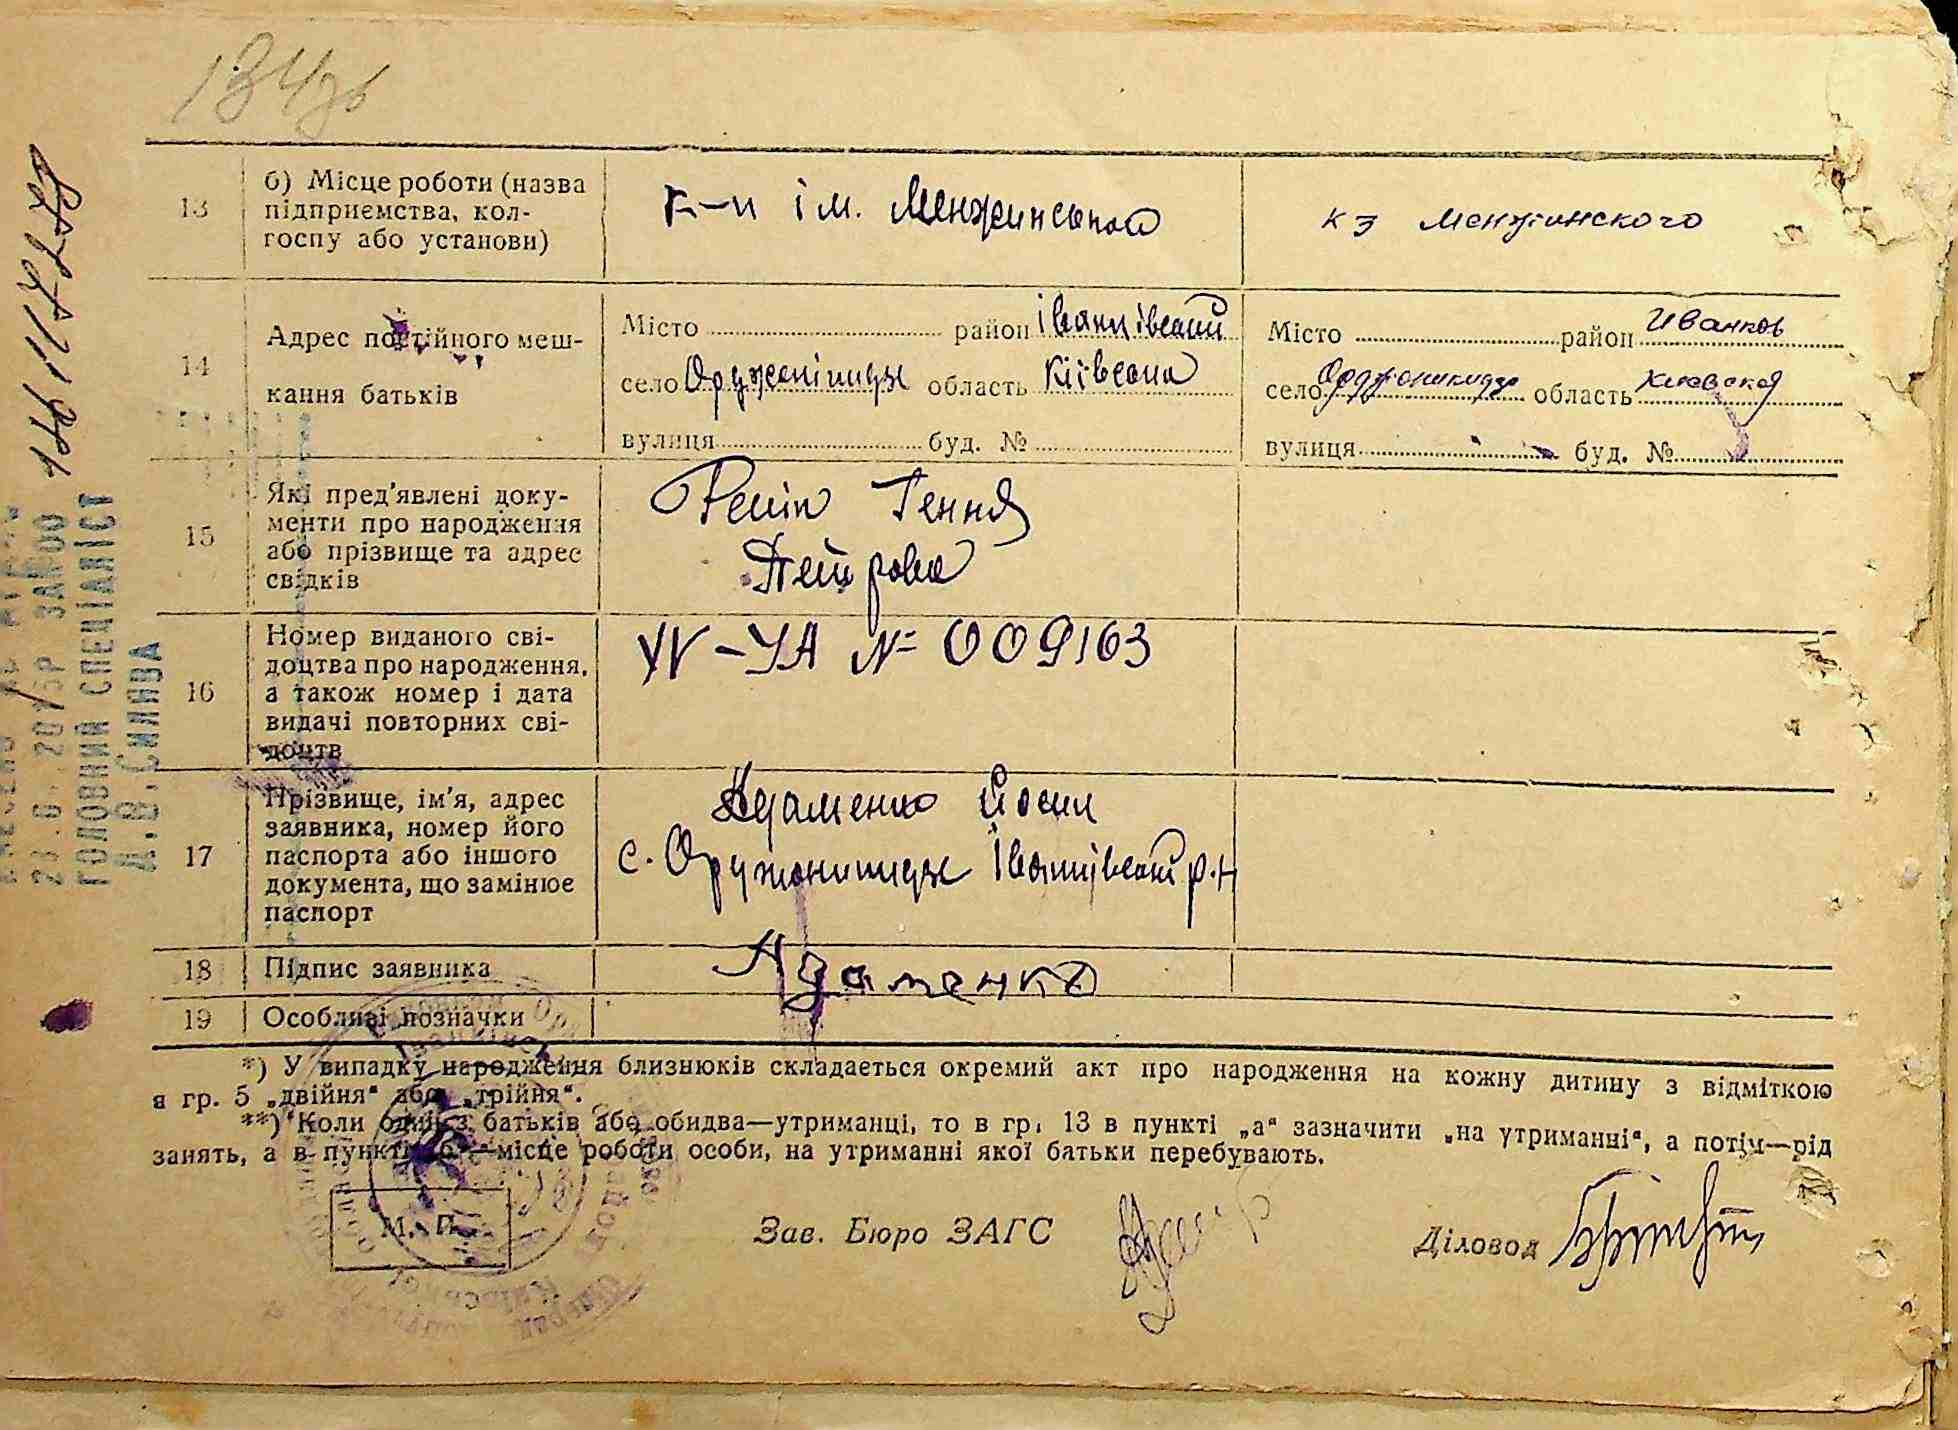 134зв
13
б) Місце роботи (назва
підприємства, кол-
госпу або установи)
к-п ім. Менжинського
кз Менжинского
14
Адрес постійного меш-
кання батьків
Місто район Іванківський
село Орджонікідзе область Київська
вулиця буд. №
Місто район Иванков
село Орджоникидзе область Киевская
вулиця буд. №
15
Які пред'явлені доку-
менти про народження
або прізвище та адрес
свідків
Гення
Петрова
16
Номер виданого сві-
доцтва про народження,
а також номер і дата
видачі повторних сві-
доцтв
УА № 009163
17
Прізвище, ім'я, адрес
заявника, номер його
паспорта або іншого
документа, що замінює
паспорт
Адаменко Йосип
с. Орджоникидзе Іванківський р-н
18
Підпис заявника
Адаменко
19
Особливі позначки
*) У випадку народження близнюків складається окремий акт про народження на кожну дитину з відміткою
в гр. 5 „двійня“ або „трійня“.
**) Коли один з батьків або обидва—утриманці, то в гр. 13 в пункті „а“ зазначити „на утриманні“, а потім—рід
занять, а в пункті „б“—місце роботи особи, на утриманні якої батьки перебувають.
М. П.
Зав. Бюро ЗАГС
Діловод
ГОЛОВНИЙ СПЕЦІАЛІСТ
А.В.Силява